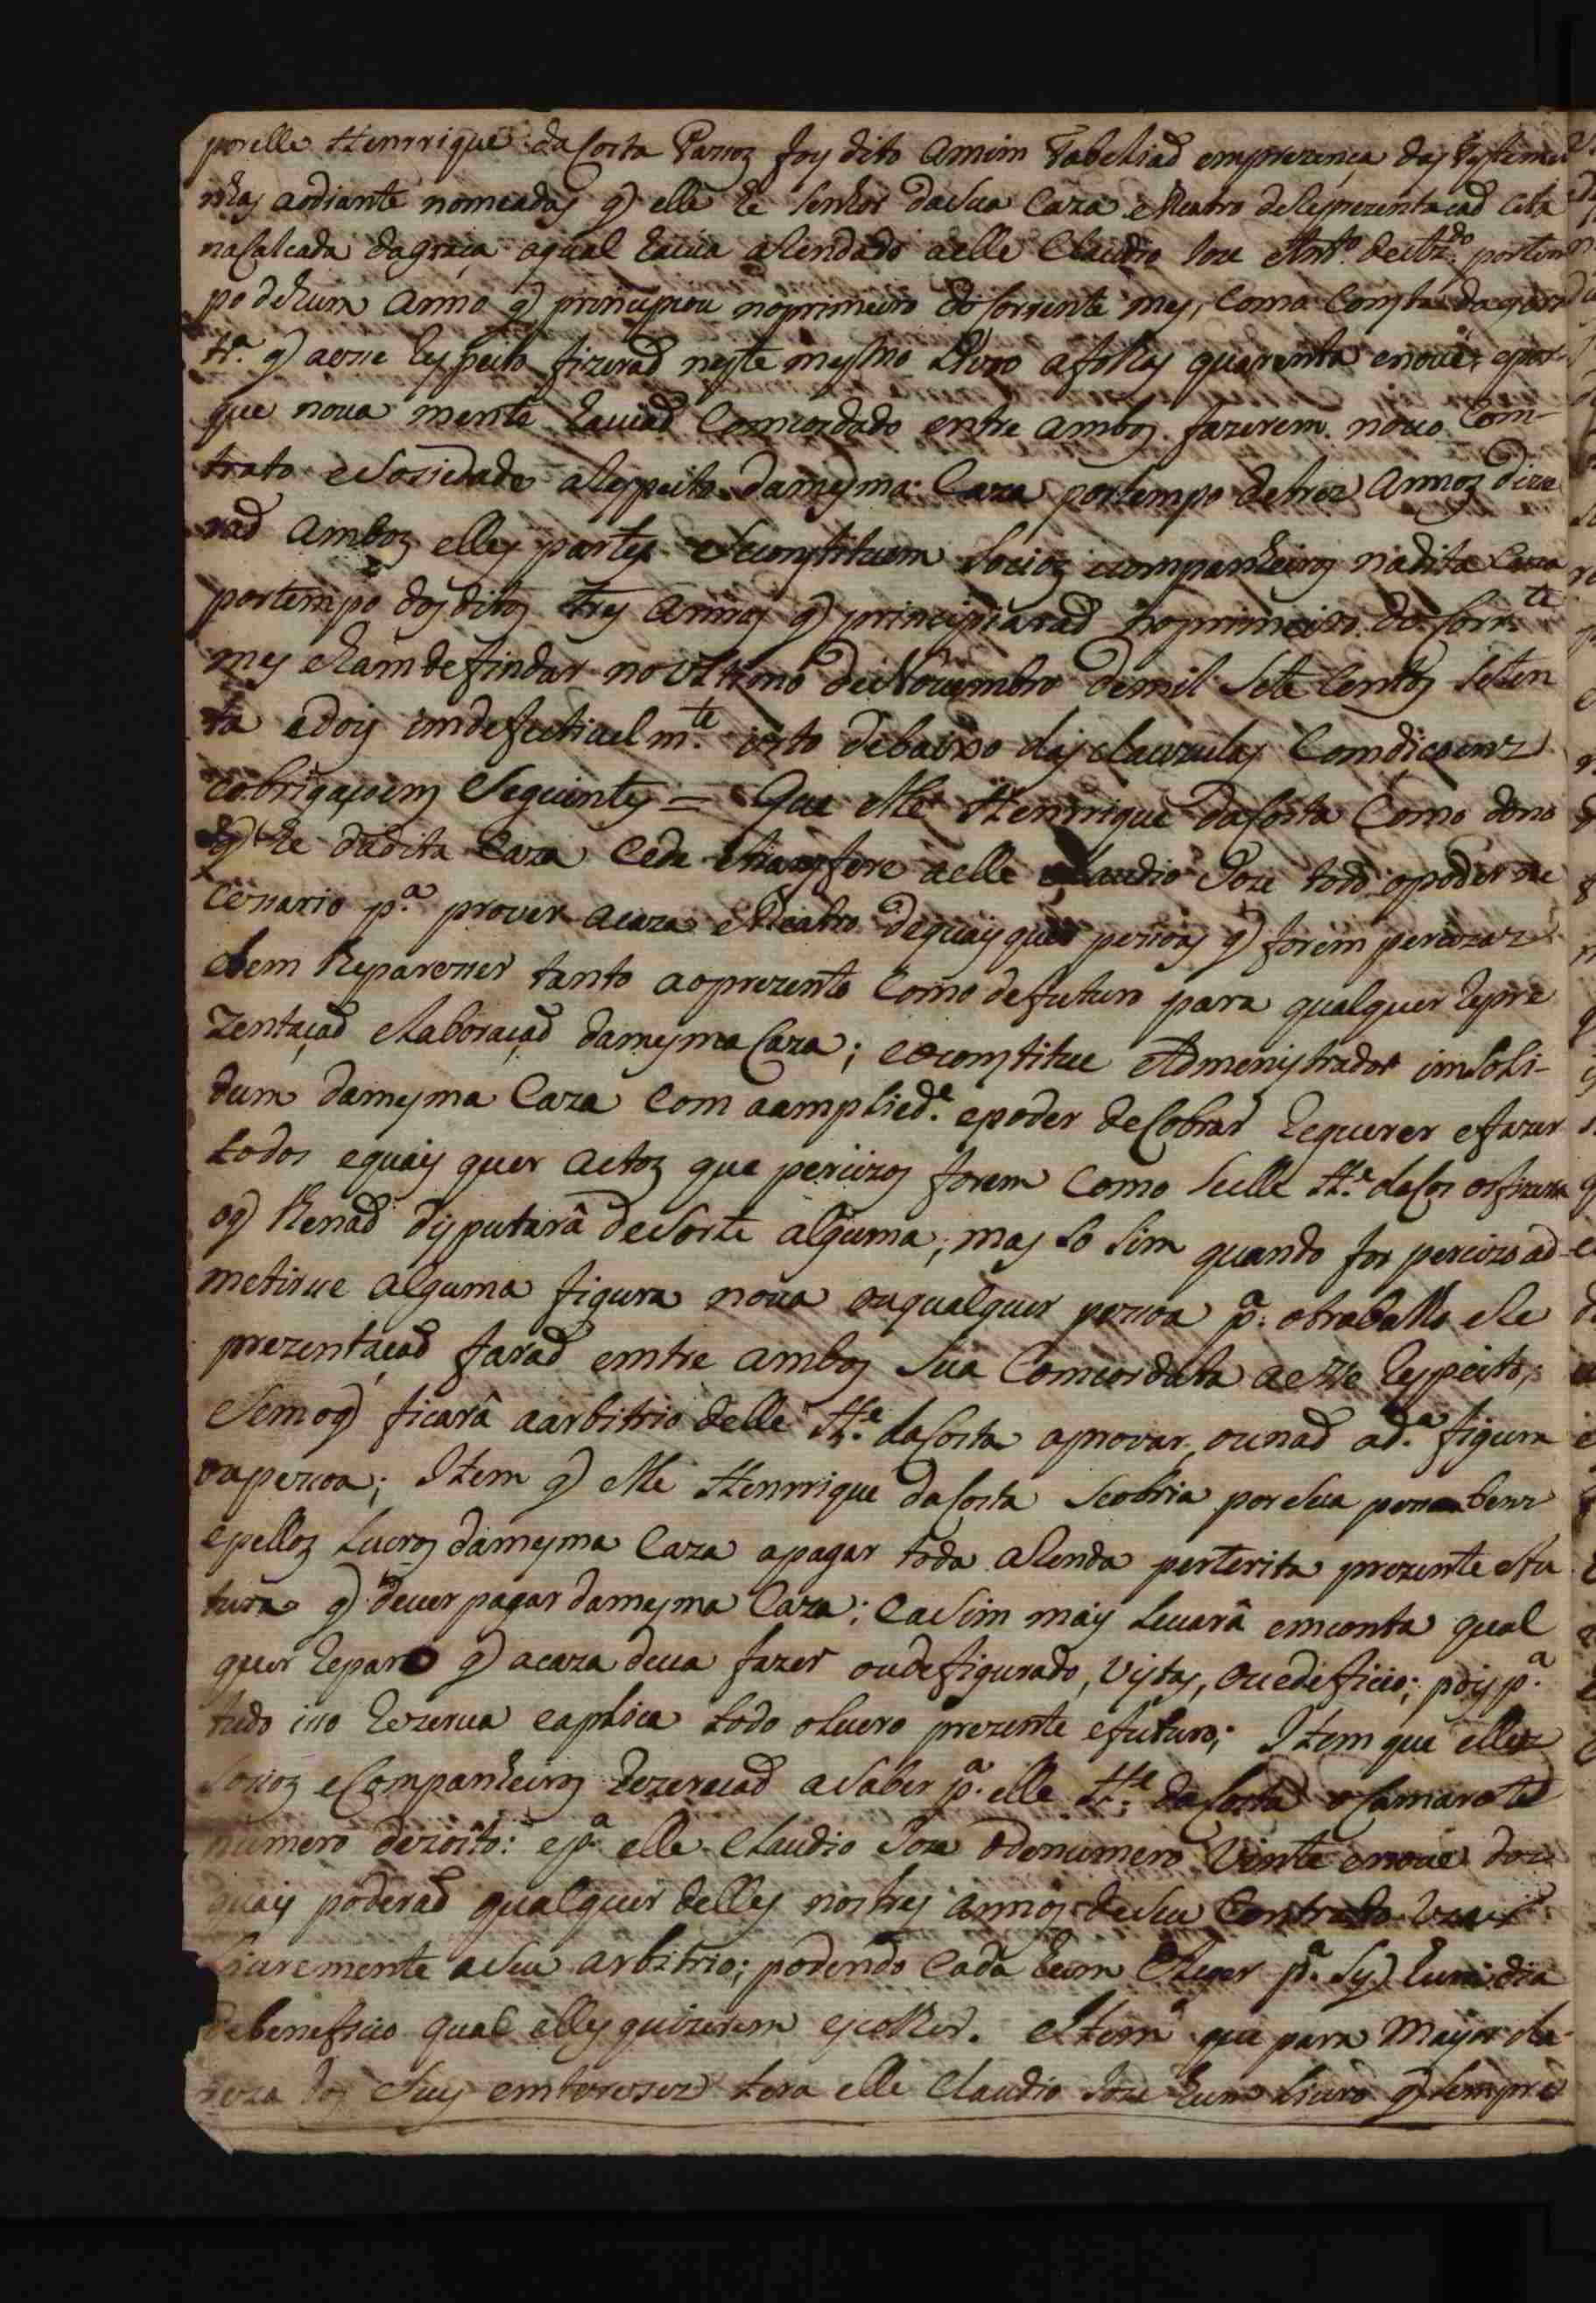 por elle Henrrique da Costa Passoz foy dito amim Tabeliaõ em prezença das testemu
nhas aodiante nomeadas q) elle he senhor da sua Caza eteatro de Reprezentaçaõ Cita
na Calcada da graça aqual hauia aRendado aelle Claudio Joze por tem
po de hum anno q) principiou no primeiro do Corrente mes, como consta da
tr.ª q) aesse Respeito fizeraõ neste mesmo Livro a folhas quarenta enove; epor
que noua mente hauiaõ Comcordado entre ambos fazerem nouo Com-
trato eSosiedade aRespeito da mesma Caza por tempo de trez annoz dice
raõ amboz elles partes Se constituem Socioz ecompanheiros na dita Caza
por tempo dos ditos tres annos q) principiaraõ no primeiro do Corr.te
mes eham de findar no ultimo de Nouembro de mil Sete Centos Seten
ta edois imdefectiuel m.te isto debaixo das clauzulas Comdicoenz
eobrigaçoens Seguintes = Que elle Henrrique da Costa Como dono
q) he da dita Caza Cede etransfere aelle Claudio Joze todo opoder ne
cessario p.ª prover acaza eteatro de quais quer pessoas q) forem percizaz
ebem Reparesser tanto ao prezente Como de futuro para qualquer Repre
zentaçaõ elaboraçaõ da mesma Caza; eoconstitue Admenistrador imsoli-
dum da mesma Caza Com aamplied.e epoder de Cobrar Requerer efazer
todos equais quer actoz que percizos forem Como Seelle H.e da Cos osfizera
oq) lhe naõ disputarâ de Sorte alguma; mas So Sim quando for percizo ad
metirse alguma figura noua ou qualquer pessoa p.ª otraballo eRe
prezentaçaõ faraõ emtre ambos Sua Comcordata aesse Respeito;
eSem oq) ficarâ aarbitrio delle H.e da Costa aprovar, ou naõ ad.ª figura
oupessoa; Item q) elle Henrrique da Costa Seobriga por Sua pessoa benz
epelloz Lucros da mesma Caza apagar toda aRenda perterita prezente efu
tura q) deuer pagar da mesma Caza; eaSim mais Leuarâ emconta qual
quer Reparo q) acaza deua fazer ou de figurado, Vistas, ou edeficio; pois p.ª
tudo isso Rezerua eaplica todo oLucro prezente efuturo; Item que elles
Socioz eCompanheiros Rezeruaõ aSaber p.ª elle H.e da Costa oCamarote
numero dezoito: ep.ª elle Claudio Joze odo numero Vinte enoue doz
quais poderaõ qualquer delles nos tres annos de Seu Contrato Vzar
Liuremente aSeu arbitrio; podendo Cada hum Eleger p.ª Sy) hum dia
de beneficio qual elles quizerem escolher. eItem que para Mayor cla-
reza dos Seus emteresses tera elle Claudio Joze hum Liuro q) Sempre